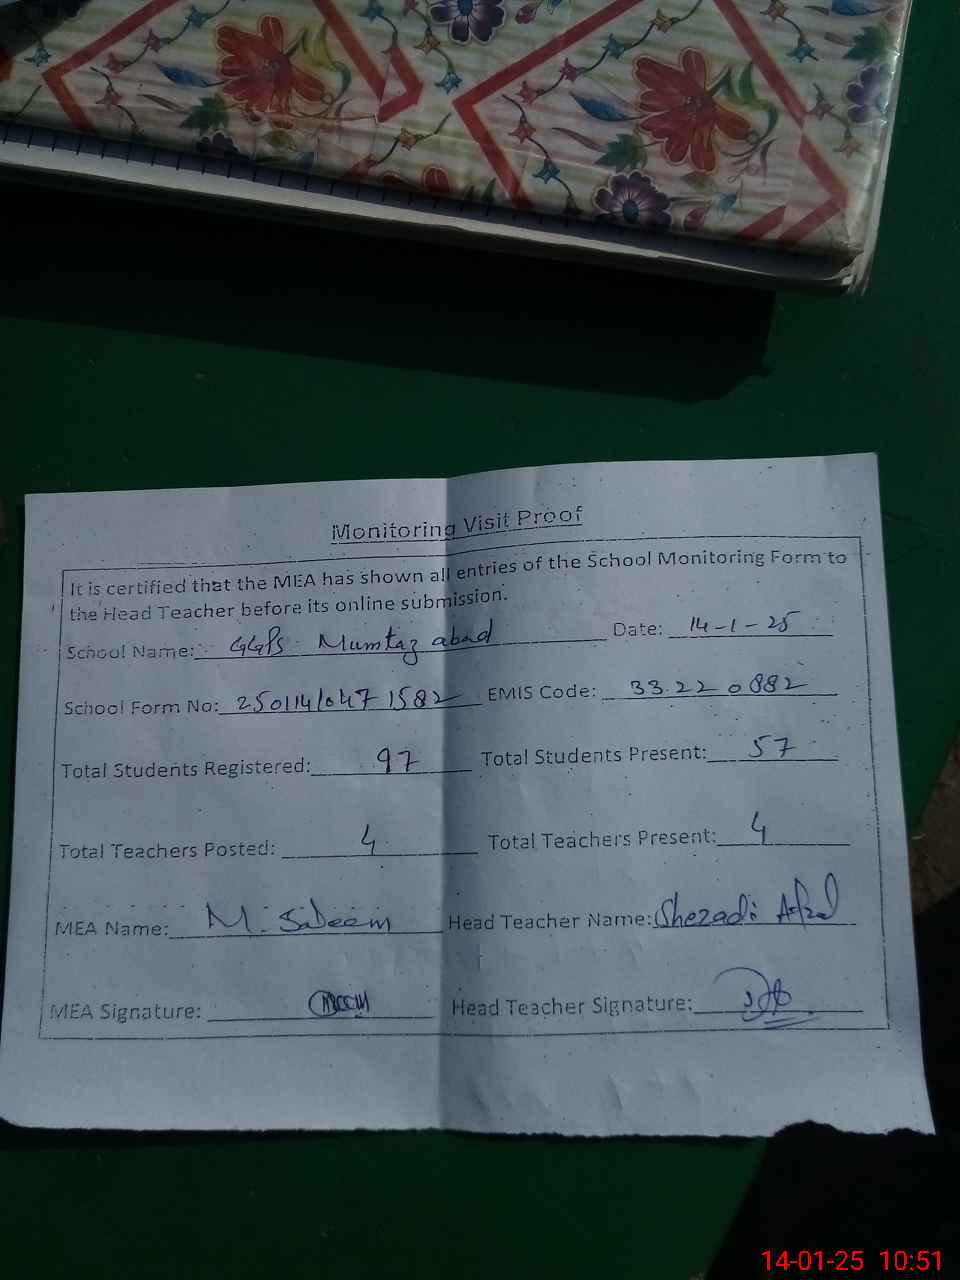 Monitoring Visit Proof
It is certified that the MEA has shown all entries of the School Monitoring Form to
the Head Teacher before its online submission.
School Name: GGPS Mumtaz abad Date: 14-1-25
School Form No: 250114/047 1582 EMIS Code: 33.22 0882
Total Students Registered: 97 Total Students Present: 57
Total Teachers Posted: 4 Total Teachers Present: 4
MEA Name: M. Saleem Head Teacher Name: Shezadi Afzal
MEA Signature: Head Teacher Signature:
14-01-25 10:51